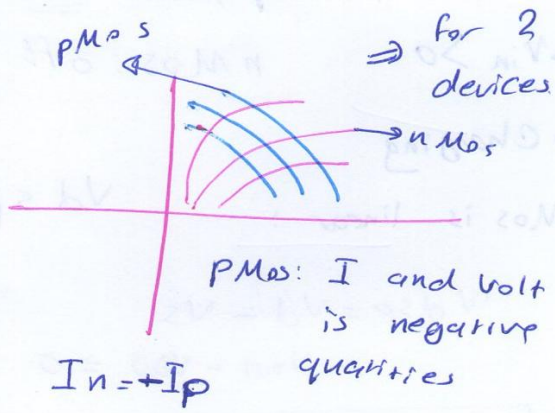 pMos
⇒ for 2
devices
nMos
PMos: I and volt
is negative
quarities
In=-Ip